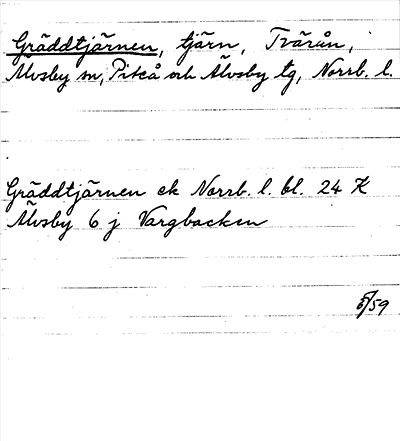 Gräddtjärnen, tjärn, Tvärån,
Älvsby sn, Piteå och Älvsby tg, Norrb. l.
Gräddtjärnen ek Norrb. l. bl. 24 K
Älvsby 6 j Vargbacken
/59